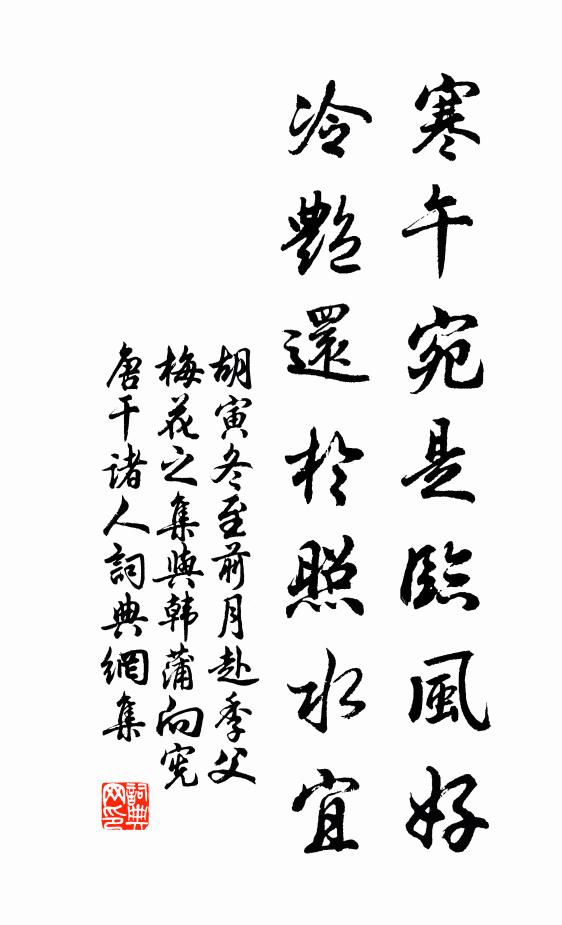 寒午宛是臨風好
冷艷還於照水宜
胡寅冬至前月赴季父
梅花之集與韩蒲向憲
唐干诸人詞典網集
詞典网印